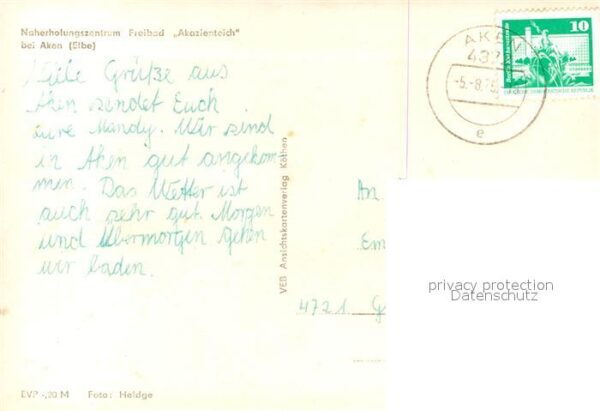 Naherholungszentrum Freibad „Akazienteich"
bei Aken (Elbe)
Viele Grüße aus
Aken sendet Euch
eure Mandy. Wir sind
in Aken gut angekom
men. Das Wetter ist
auch sehr gut. Morgen
und Übermorgen gehen
wir baden.
EVP -,20 M Foto: Heldge
VEB Ansichtskartenverlag Köthen
AKEN
e
10
An
Em
4721 G
privacy protection
Datenschutz